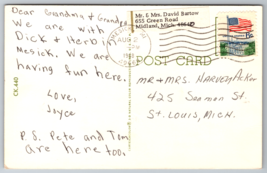 Dear Grandma & Grandpa
We are with
Dick & Herbi,
Mesick. We are
having fun here.
Love,
Joyce
P.S. Pete and Tom
are here too.
CK-440
Mr. & Mrs. David Bartow
655 Green Road
Midland, Mich.
POST CARD
Mr & Mrs. Harvey Acker
425 Seaman St.
St. Louis, Mich.